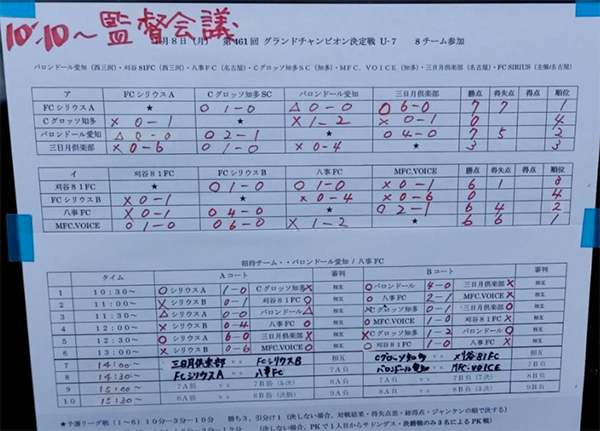 10:10～監督会議
月8日(月) 第461回 グランドチャンピオン決定戦 U-7 8チーム参加
バロンドール愛知（西三河）・刈谷81FC（西三河）・八事FC（名古屋）・CグロッソSC（知多）・MFC．VOICE（知多）・三日月倶楽部（名古屋）・FC SIRIUS（主催/名古屋）
ア FCシリウスA Cグロッソ知多SC バロンドール愛知 三日月倶楽部 勝点 得失点 得点 順位
FCシリウスA ★ ○1-0 △0-0 ○6-0 7 7 1
Cグロッソ知多 ×0-1 ★ ×1-2 ×0-1 0 4
バロンドール愛知 △0-0 ○2-1 ★ ○4-0 7 5 2
三日月倶楽部 ×0-6 ○1-0 ×0-4 ★ 3 3
イ 刈谷81FC FCシリウスB 八事FC MFC.VOICE 勝点 得失点 得点 順位
刈谷81FC ★ ○1-0 ○1-0 ×0-1 6 1 3
FCシリウスB ×0-1 ★ ×0-4 ×0-6 0 4
八事FC ×0-1 ○4-0 ★ ○2-1 6 4 2
MFC.VOICE ○1-0 ○6-0 ×1-2 ★ 6 6 1
招待チーム・・バロンドール愛知 / 八事FC
タイム Aコート 審判 Bコート 審判
1 10:30～ ○シリウスA 1-0 Cグロッソ知多× 相互 ○バロンドール 4-0 三日月倶楽部× 相互
2 11:00～ ×シリウスB 0-1 刈谷81FC○ 相互 ○八事FC 2-1 MFC.VOICE× 相互
3 11:30～ △シリウスA 0-0 バロンドール△ 相互 ×Cグロッソ知多 0-1 三日月倶楽部○ 相互
4 12:00～ ×シリウスB 0-4 八事FC○ 相互 ○MFC.VOICE 1-0 刈谷81FC× 相互
5 12:30～ ○シリウスA 6-0 三日月倶楽部× 相互 ×Cグロッソ知多 1-2 バロンドール○ 相互
6 13:00～ ×シリウスB 0-6 MFC.VOICE○ 相互 ○刈谷81FC 1-0 八事FC× 相互
7 14:00～ 三日月倶楽部 FCシリウスB 相互 Cグロッソ知多 刈谷81FC 相互
8 14:30～ FCシリウスA 八事FC 7A負 バロンドール愛知 MFC.VOICE 7B負
9 15:00～
10 15:30～
★予選リーグ戦（1～6）10分－3分－10分 勝ち3、引分け1（決しない場合、対戦結果・得失点差・総得点・ジャンケンの順で決する）
（決しない場合、PKで1人目からサドンデス・決勝戦のみ3名によるPK戦）